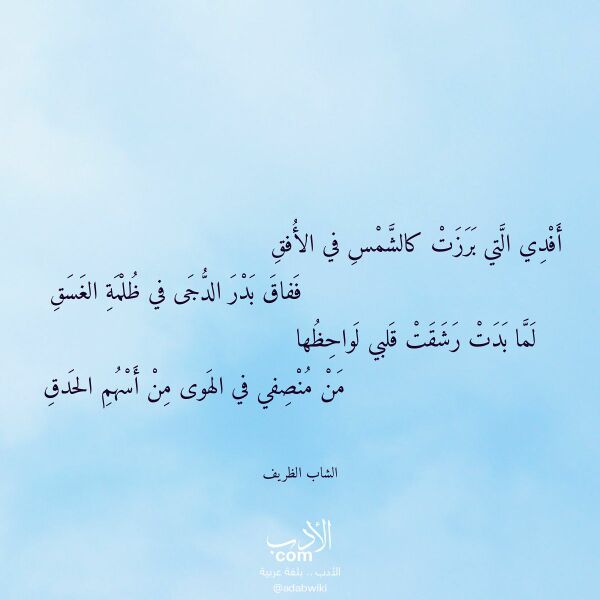 أَفْدِي الَّتي بَرَزَتْ كالشَّمْسِ في الأُفقِ
فَفاقَ بَدْرَ الدُّجَى في ظُلْمَةِ الغَسَقِ
لَمَّا بَدَتْ رَشَقَتْ قَلبي لَواحِظُها
مَنْ مُنْصِفي في الهَوى مِنْ أَسْهُمِ الحَدقِ
الشاب الظريف
الأدب
com
الأدب .. بلغة عربية
@adabwiki